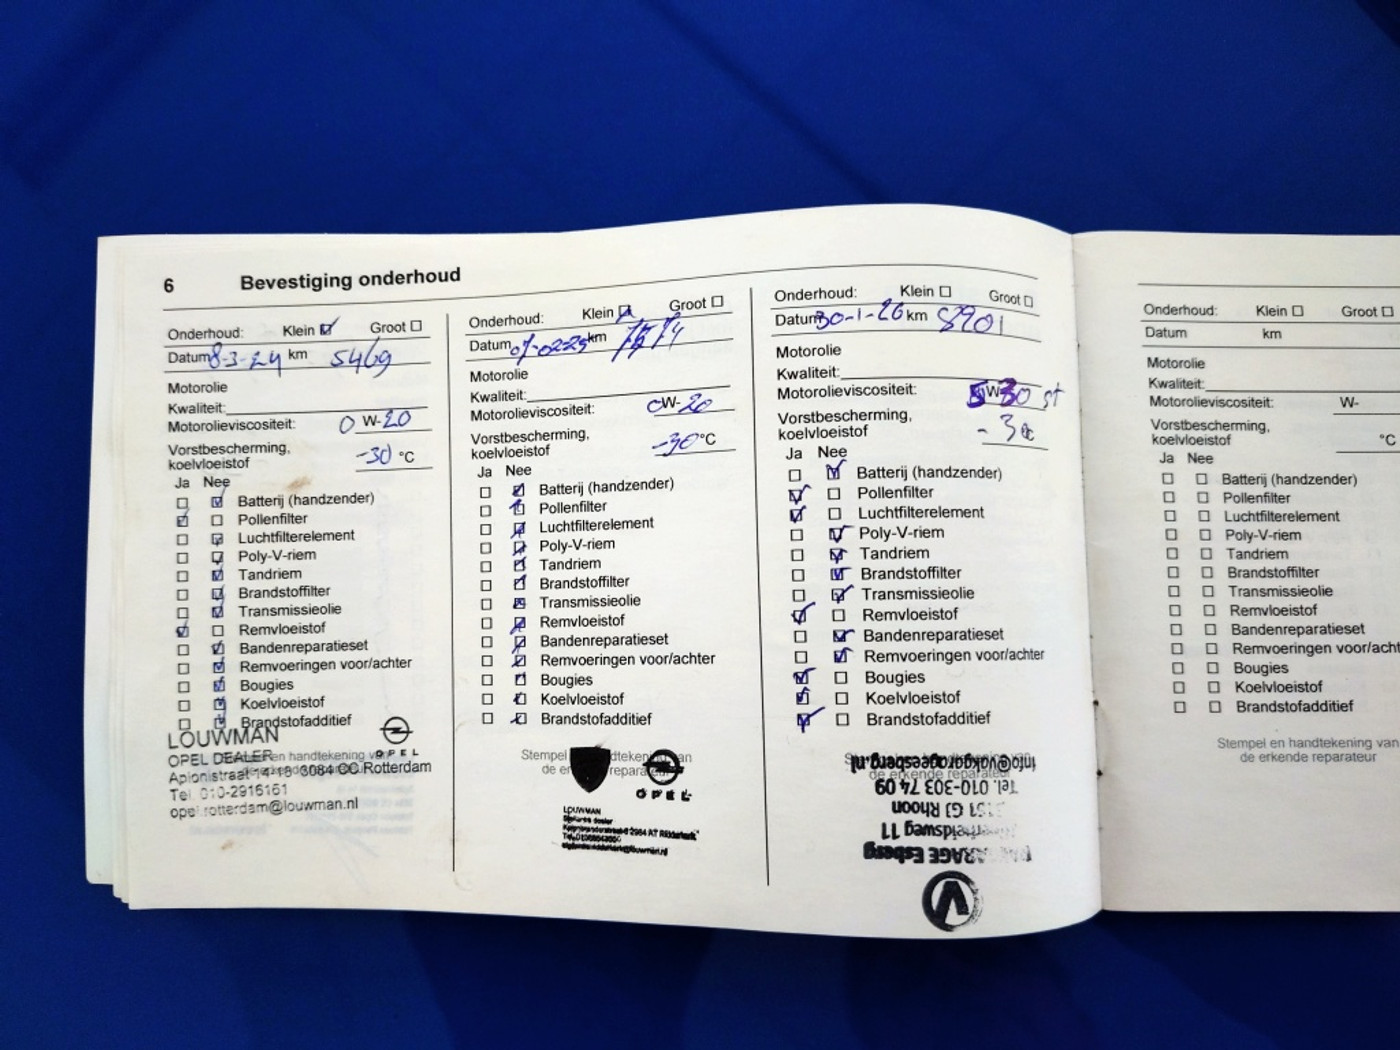 6 Bevestiging onderhoud
Onderhoud: Klein Groot
Datum 8-3-24 km 5469
Motorolie
Kwaliteit:
Motorolieviscositeit: 0 W-20
Vorstbescherming,
koelvloeistof -30 °C
Ja Nee
Batterij (handzender)
Pollenfilter
Luchtfilterelement
Poly-V-riem
Tandriem
Brandstoffilter
Transmissieolie
Remvloeistof
Bandenreparatieset
Remvoeringen voor/achter
Bougies
Koelvloeistof
Brandstofadditief
LOUWMAN
OPEL
OPEL DEALER
Apionistraat 14-16 3084 CC Rotterdam
Tel. 010-2916161
opel.rotterdam@louwman.nl
Onderhoud: Klein Groot
Datum 07-02-25 km
Motorolie
Kwaliteit:
Motorolieviscositeit: 0 W-20
Vorstbescherming,
koelvloeistof -30 °C
Ja Nee
Batterij (handzender)
Pollenfilter
Luchtfilterelement
Poly-V-riem
Tandriem
Brandstoffilter
Transmissieolie
Remvloeistof
Bandenreparatieset
Remvoeringen voor/achter
Bougies
Koelvloeistof
Brandstofadditief
Stempel en handtekening van
de erkende reparateur
OPEL
LOUWMAN
Onderhoud: Klein Groot
Datum 30-1-26 km 8901
Motorolie
Kwaliteit:
Motorolieviscositeit: 5 W-30
Vorstbescherming,
koelvloeistof
Ja Nee
Batterij (handzender)
Pollenfilter
Luchtfilterelement
Poly-V-riem
Tandriem
Brandstoffilter
Transmissieolie
Remvloeistof
Bandenreparatieset
Remvoeringen voor/achter
Bougies
Koelvloeistof
Brandstofadditief
de erkende reparateur
VAKGARAGE Esberg
11
GJ Rhoon
Tel. 010-303 74 09
info@vakgarageesberg.nl
Onderhoud: Klein Groot
Datum km
Motorolie
Kwaliteit:
Motorolieviscositeit: W-
Vorstbescherming,
koelvloeistof °C
Ja Nee
Batterij (handzender)
Pollenfilter
Luchtfilterelement
Poly-V-riem
Tandriem
Brandstoffilter
Transmissieolie
Remvloeistof
Bandenreparatieset
Remvoeringen voor/acht
Bougies
Koelvloeistof
Brandstofadditief
Stempel en handtekening van
de erkende reparateur